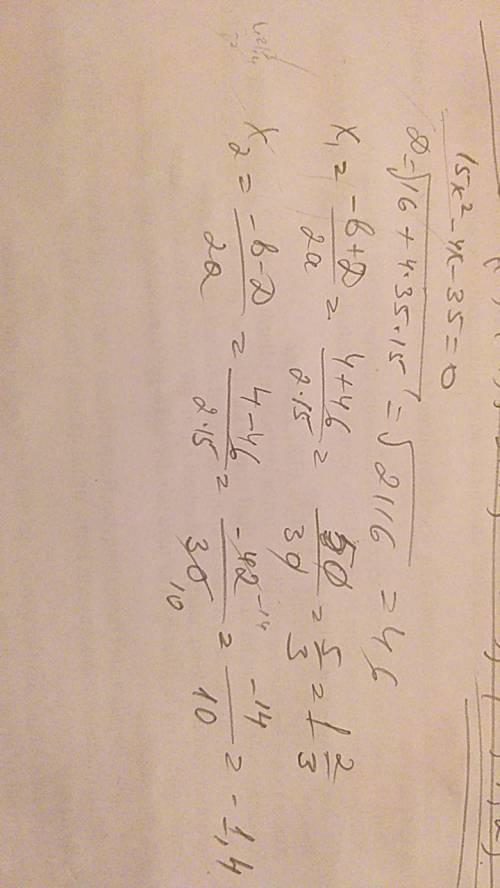 15x² - 4x - 35 = 0
D = √16 + 4·35·15 = √2116 = 46
x₁ = -b+D/2a = 4+46/2·15 = 50/30 = 5/3 = 1 2/3
x₂ = -b-D/2a = 4-46/2·15 = -42 -14/30 10 = -14/10 = -1,4